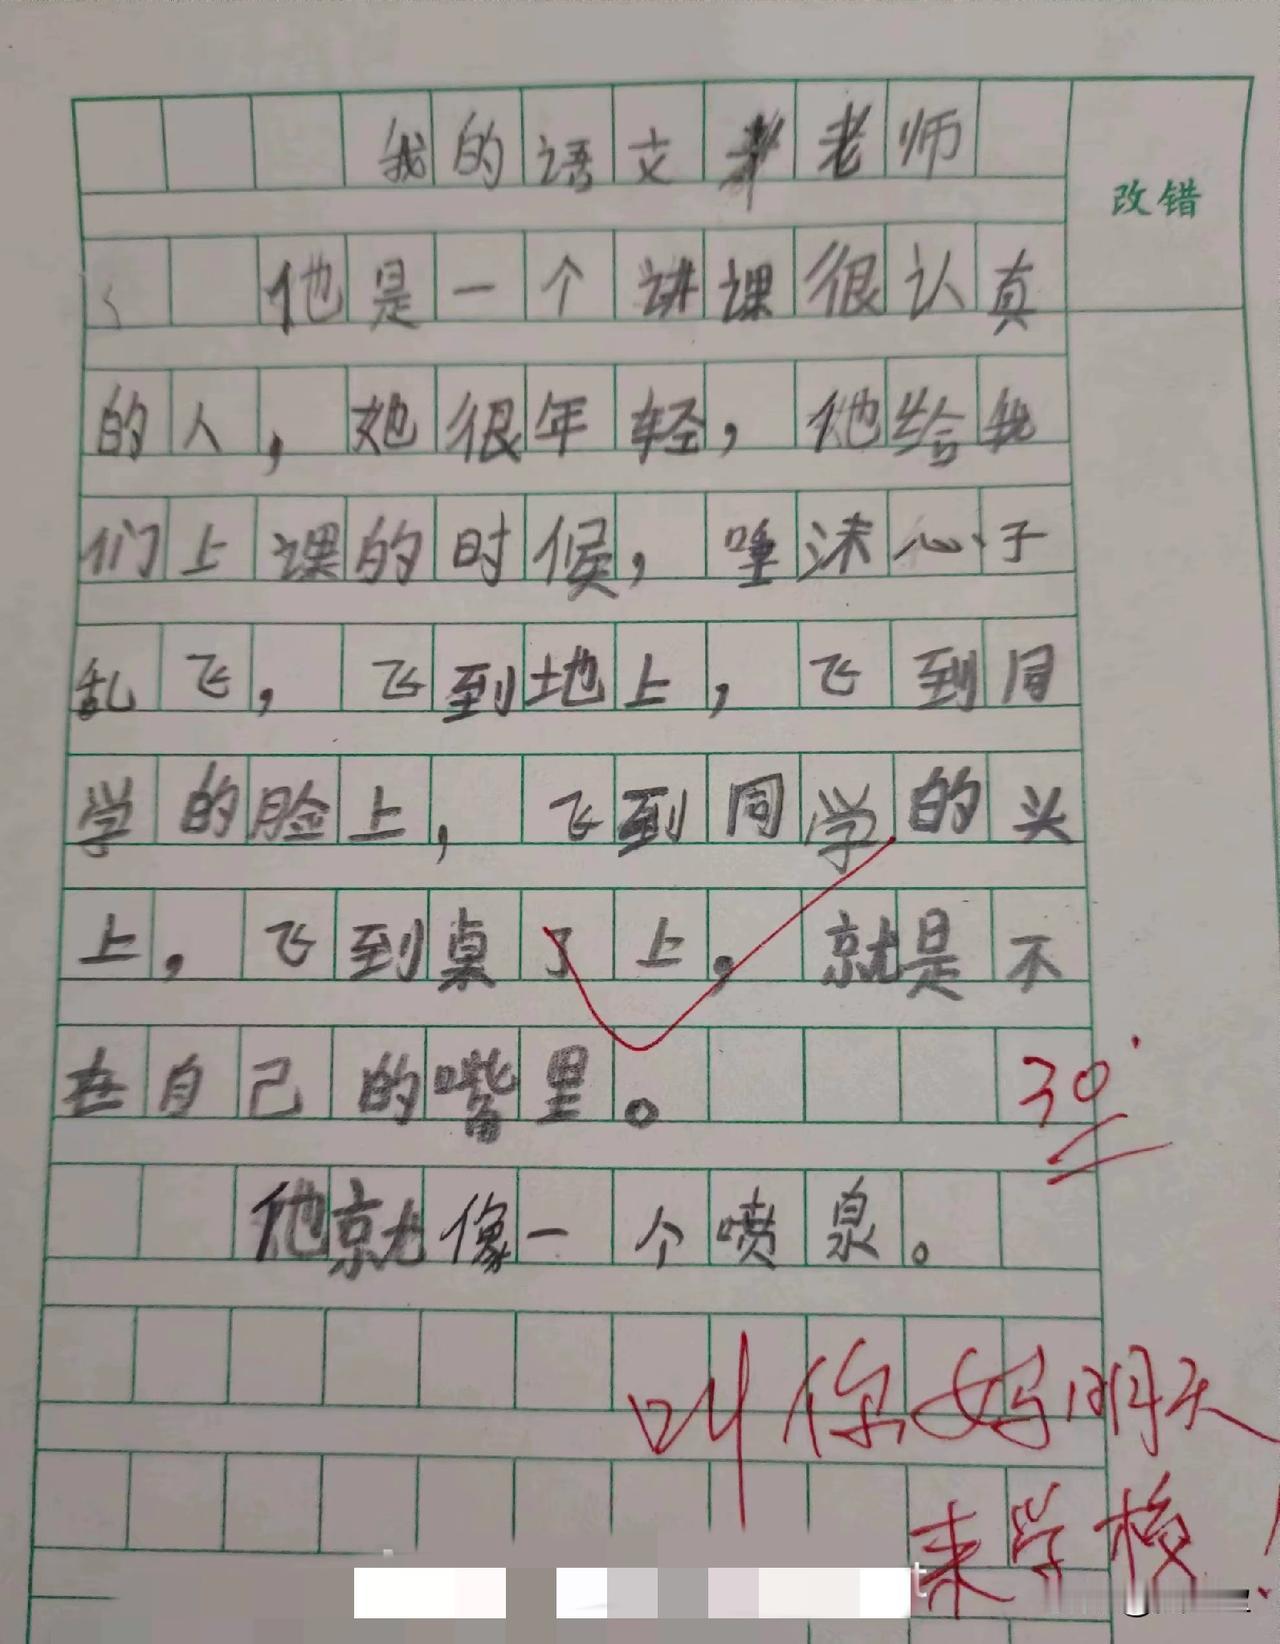 我的语文老师
改错
他是一个讲课很认真
的人，她很年轻，他给我
们上课的时候，唾沫心子
乱飞，飞到地上，飞到同
学的脸上，飞到同学的头
上，飞到桌了上，就是不
在自己的嘴里。
30
他就像一个喷泉。
叫你妈明天
来学校！